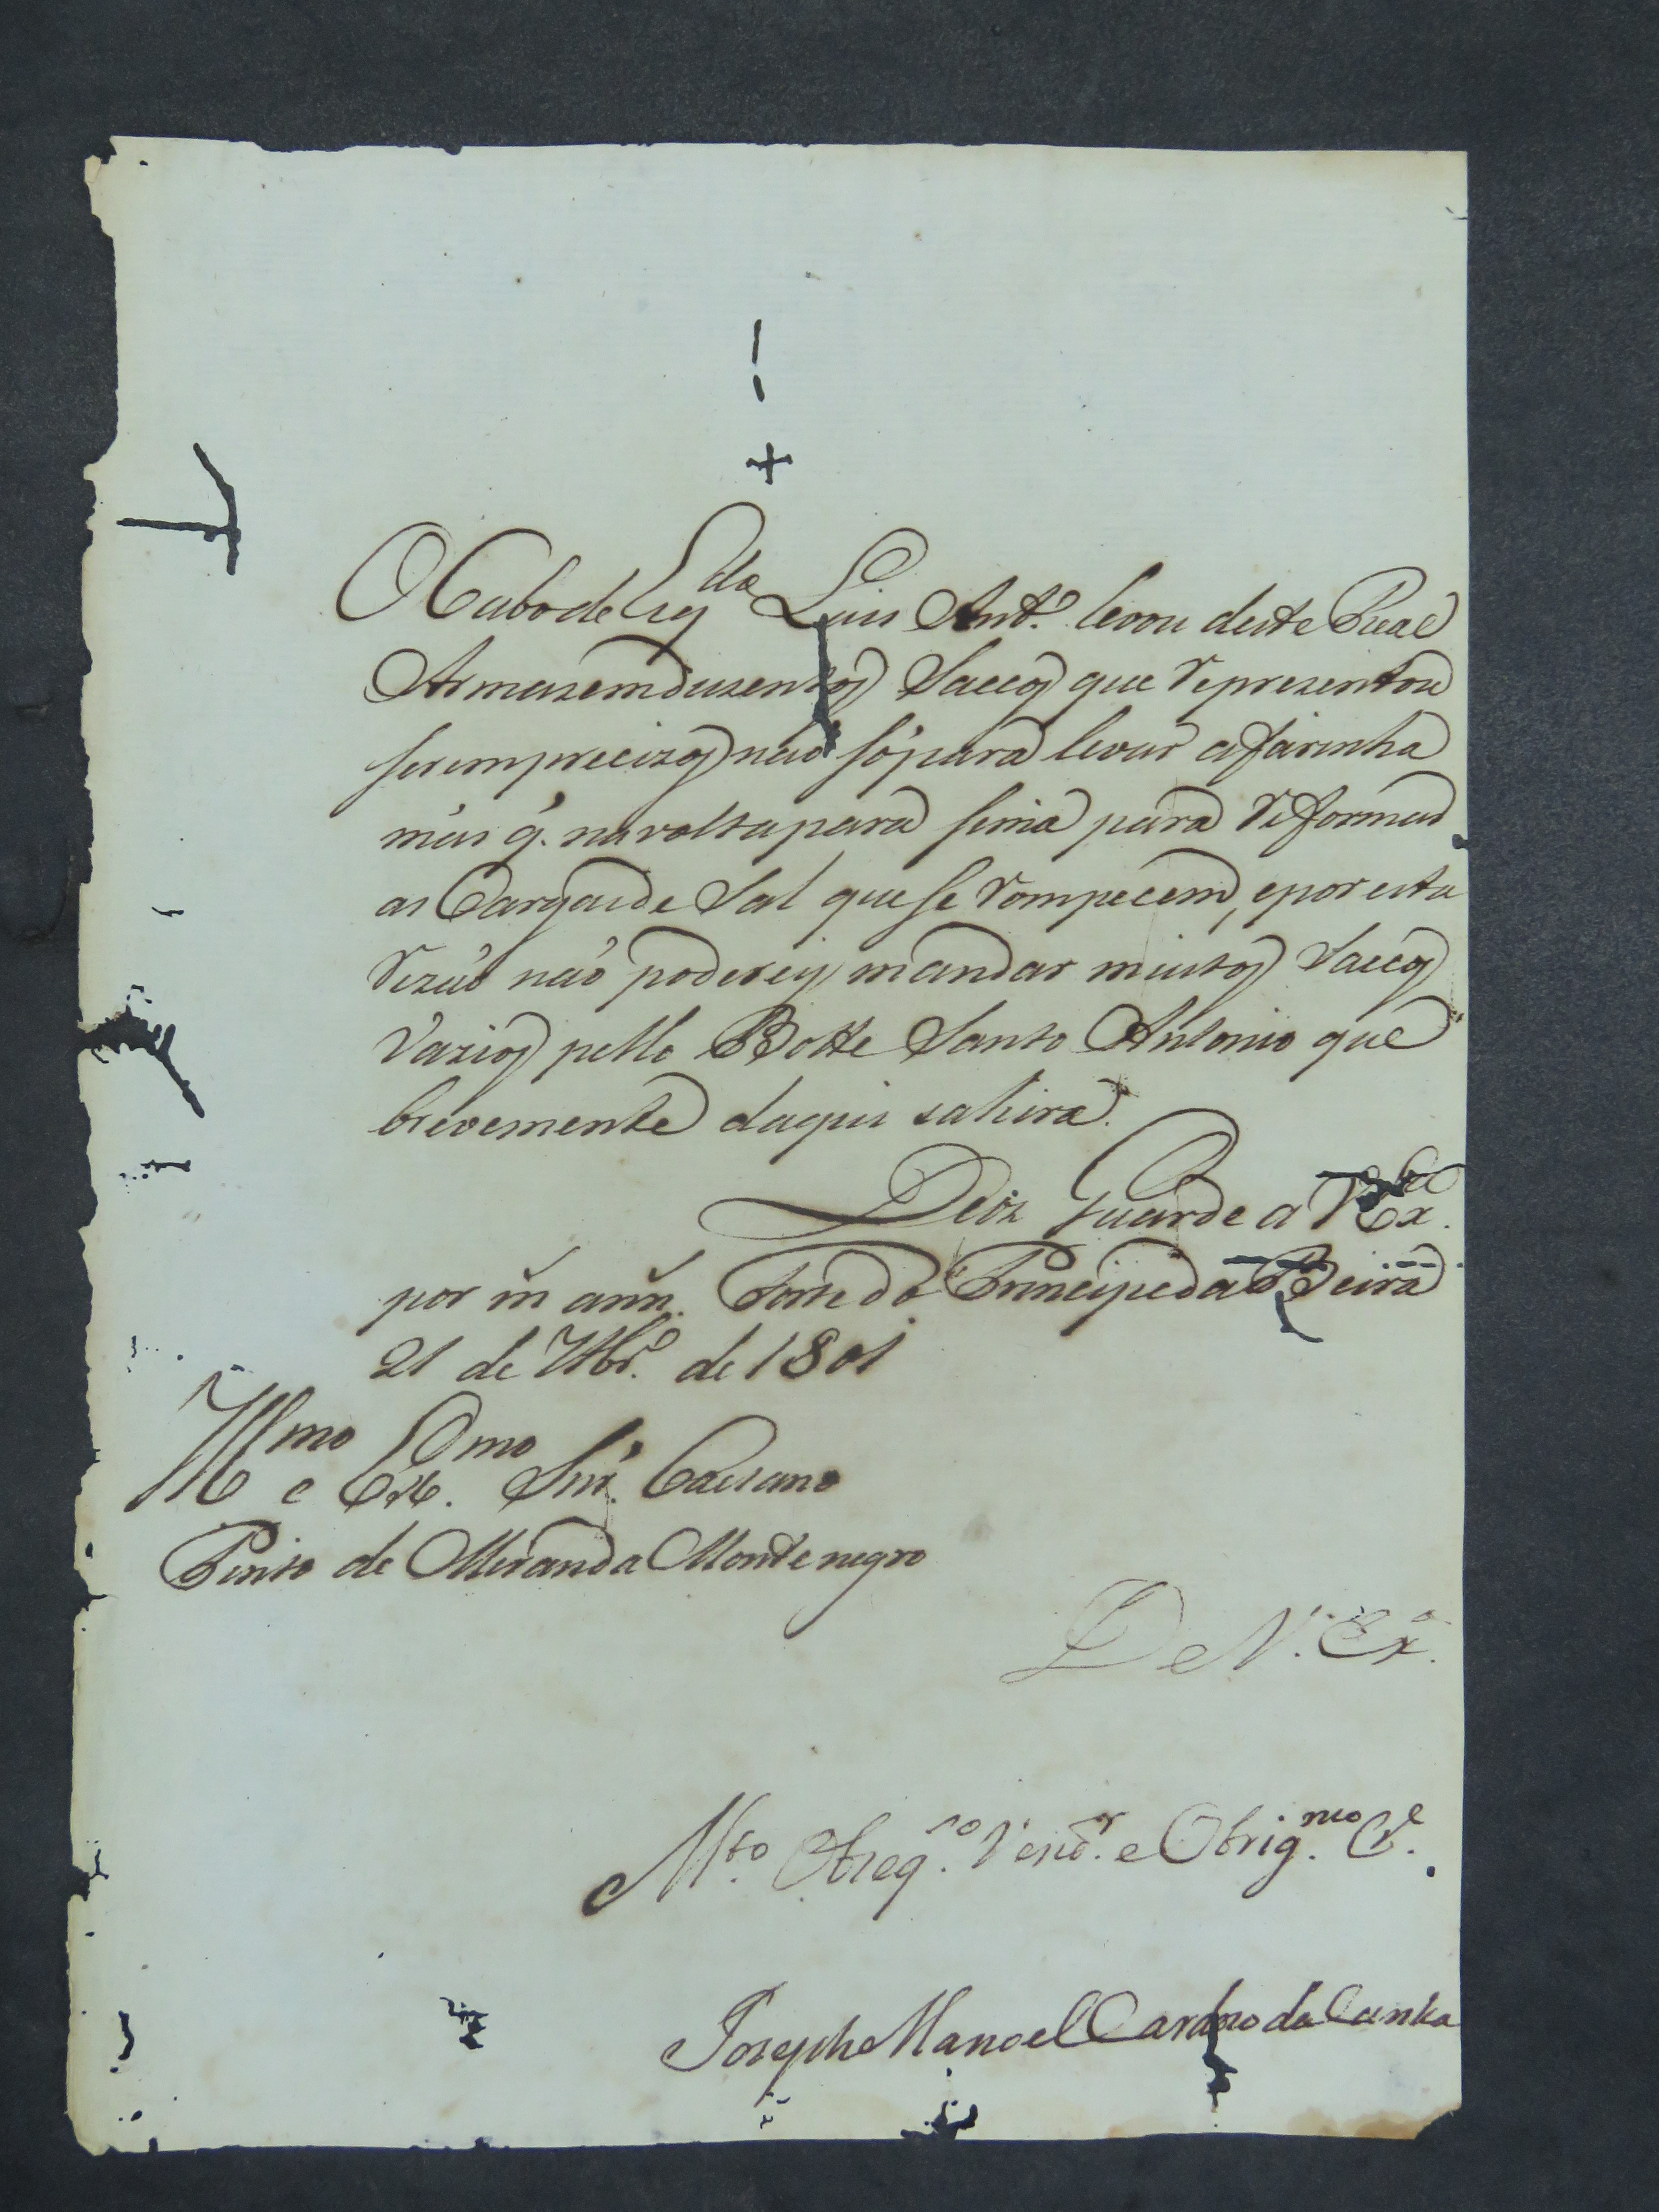 O Cabo de Esq.da Luis Ant.º levou deste Real
Armazem duzentos Saccos que reprezentou
serem precizos não só para levar a farinha
mas q. na volta para sima para reformar
as Cargas de Sal que se rompecem, e por esta
rezão não poderey mandar muitos Saccos
vazios pello Botte Santo Antonio que
brevemente daqui sahira.
Deos Guarde a V. Ex.ª
por m. ann. Forte do Principe da Beira
21 de 7br.º de 1801
Ill.mo e Ex.mo Snr. Caetano
Pinto de Miranda Montenegro
De V. Ex.ª
M.to Obseq.so Vener.or e Obrig.mo C.e
Joseph Manoel Cardozo da Cunha